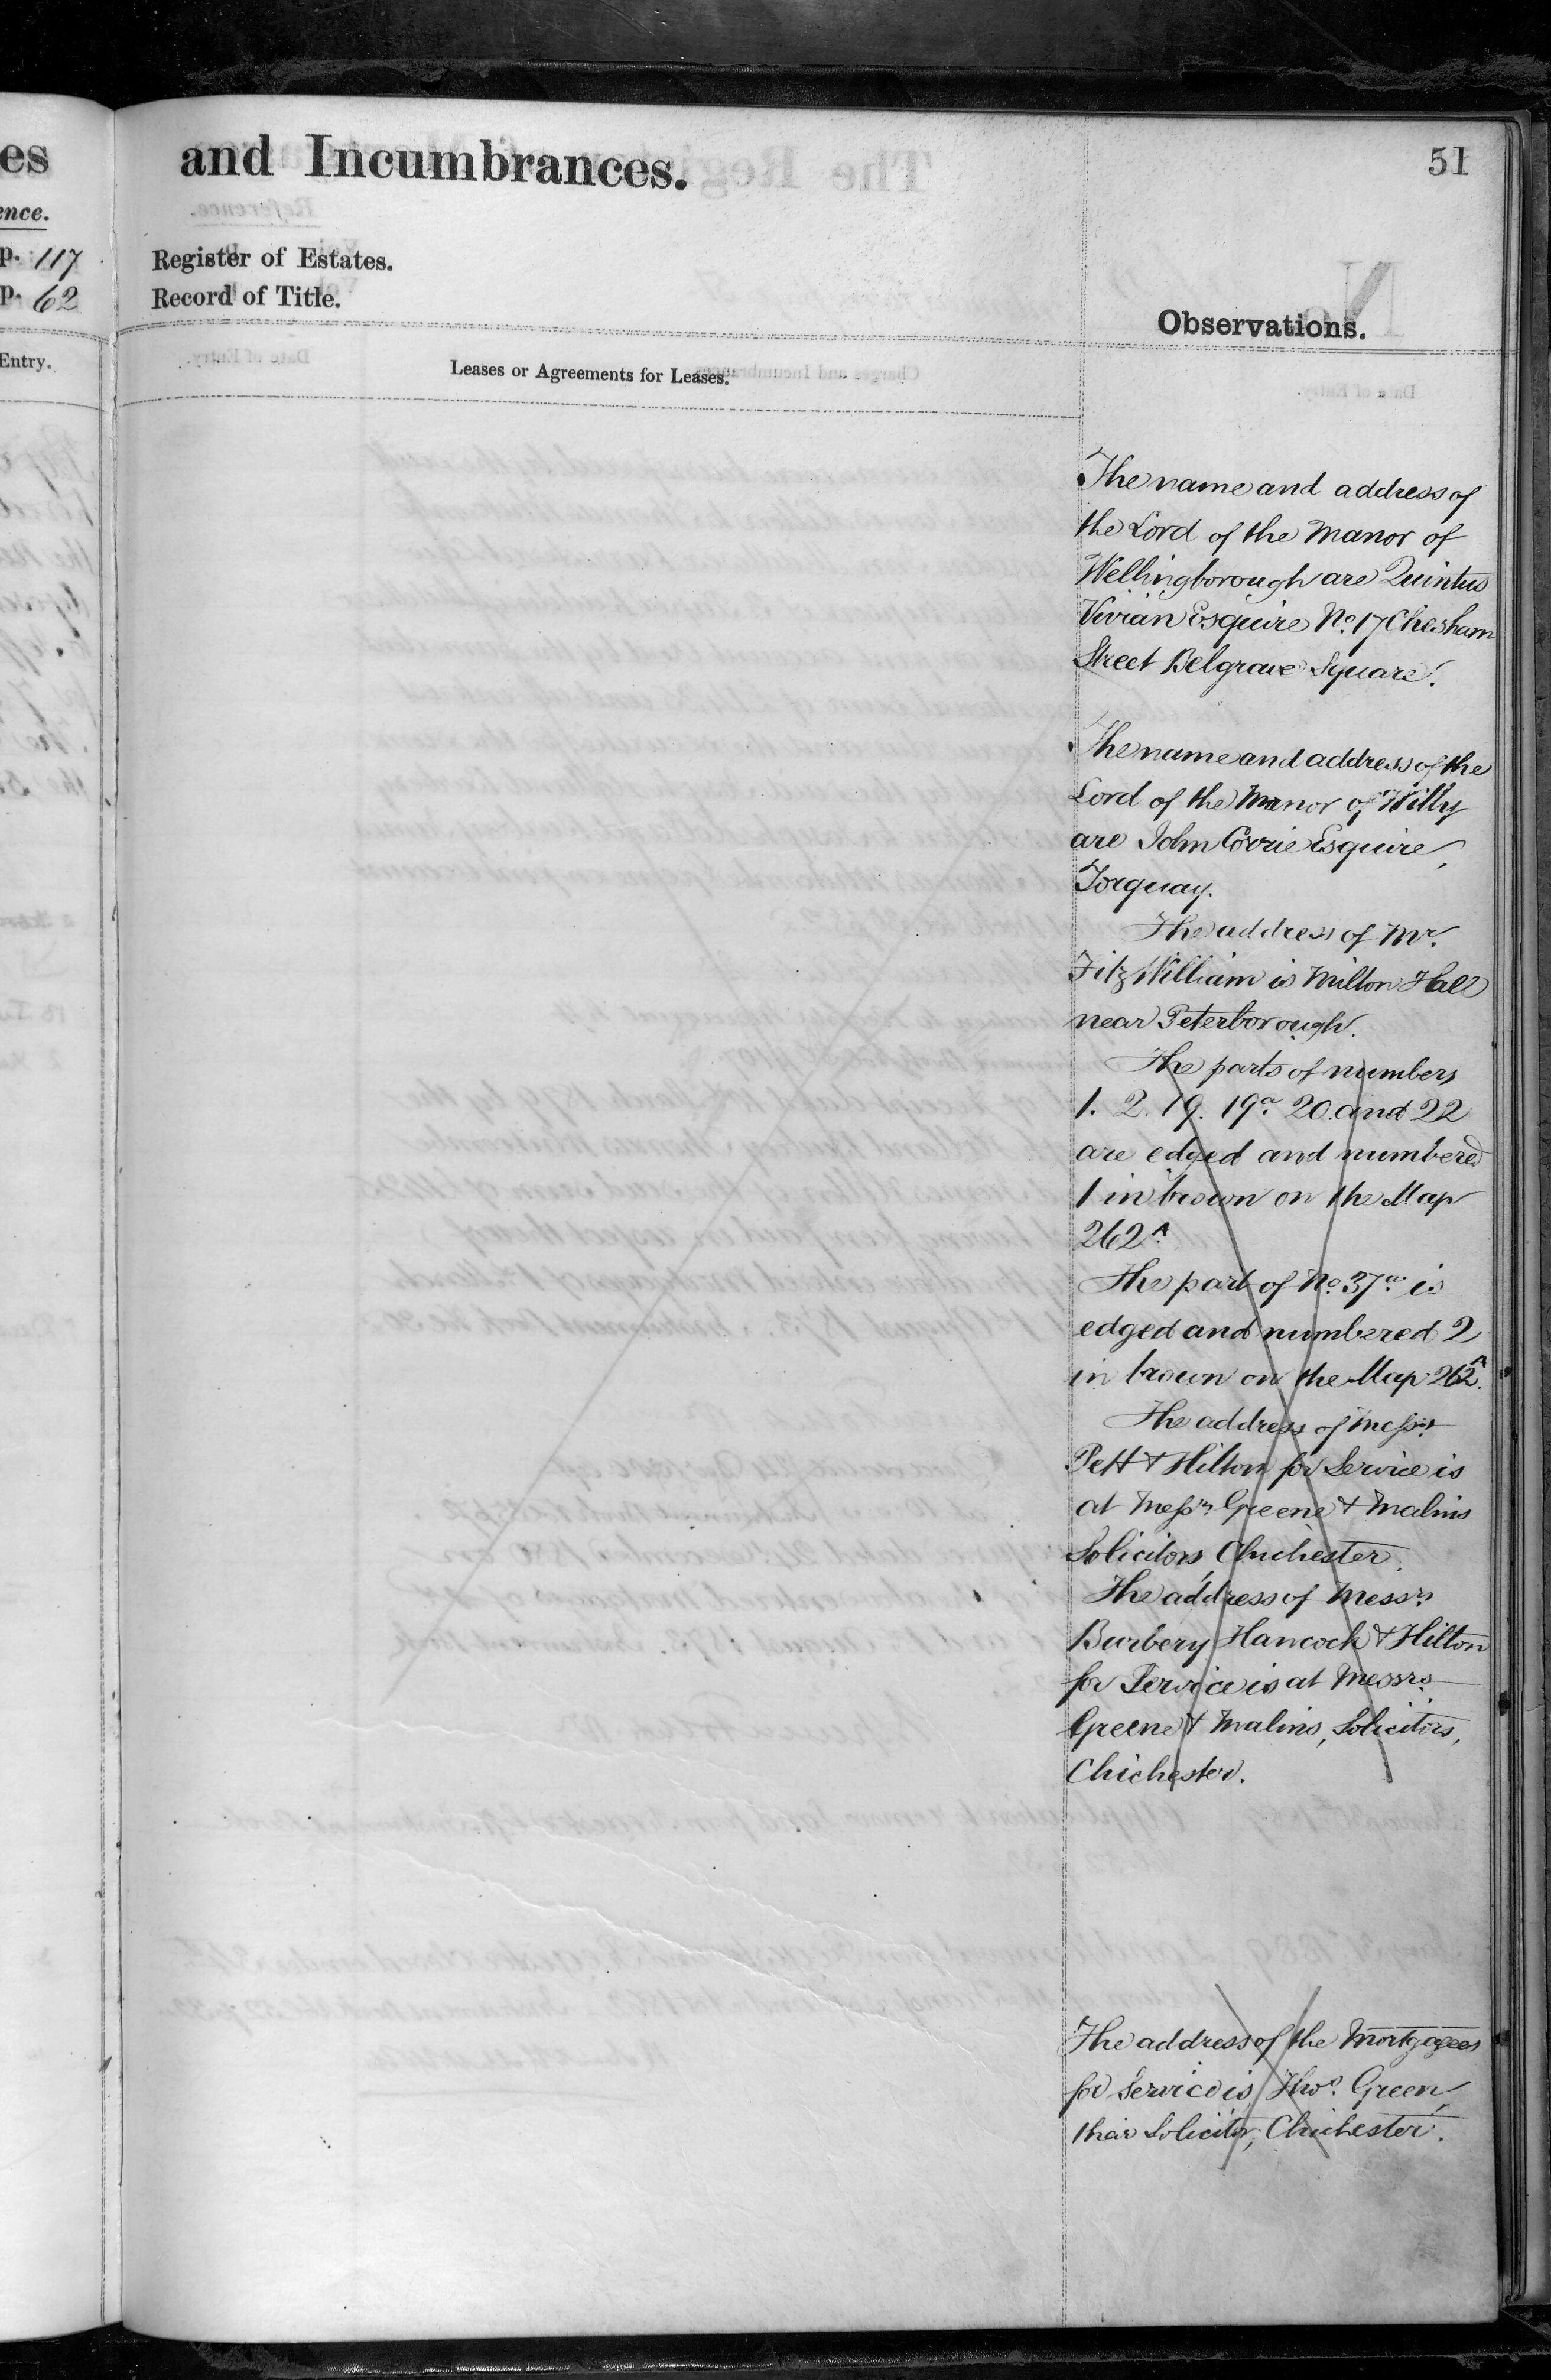 es
ence.
p. 117
p. 62
Entry.
and Incumbrances.
51
Register of Estates.
Record of Title.
Observations.
Leases or Agreements for Leases.
The name and address of
the Lord of the Manor of
Wellingborough are Quintus
Vivian Esquire No. 17 Chesham
Street Belgrave Square.
The name and address of the
Lord of the Manor of Willy
are John Corrie Esquire,
Torquay.
The address of Mr.
FitzWilliam is Milton Hall
near Peterborough.
The parts of numbers
1. 2. 19. 19a. 20. and 22
are edged and numbered
1 in brown on the Map
262A.
The part of No. 37a. is
edged and numbered 2
in brown on the Map 262A.
The address of Messrs.
Pett & Hilton for Service is
at Messrs. Greene & Malins
Solicitors, Chichester.
The address of Messrs.
Burbery Hancock & Hilton
for Service is at Messrs.
Greene & Malins, Solicitors,
Chichester.
The address of the Mortgagees
for Service is, Thos. Green,
their Solicitor, Chichester.